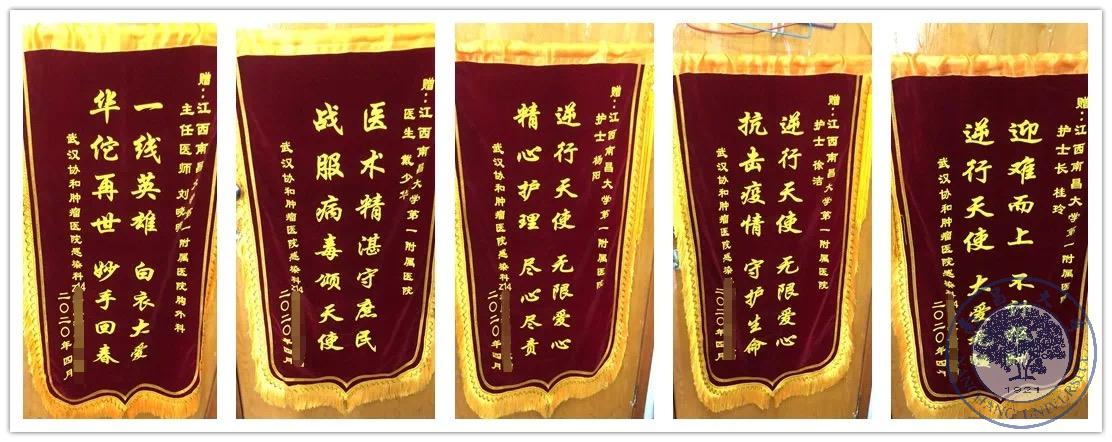 赠：江西南昌大学第一附属医院胸外科
主任医师 刘
一线英雄 白衣大爱
华佗再世 妙手回春
武汉协和肿瘤医院感染科
二〇二〇年四月
赠：江西南昌大学第一附属医院
医生 戴少华
医术精湛守庶民
战服病毒颂天使
武汉协和肿瘤医院感染科Z4
二〇二〇年四月
赠：江西南昌大学第一附属医院
护士 杨阳
逆行天使 无限爱心
精心护理 尽心尽责
武汉协和肿瘤医院感染科Z4
二〇二〇年四月
赠：江西南昌大学第一附属医院
护士 徐洁
逆行天使 无限爱心
抗击疫情 守护生命
武汉协和肿瘤医院感染科Z4
二〇二〇年四月
赠：江西南昌大学第一附属医院
护士长 桂玲
迎难而上 不
逆行天使 大爱
武汉协和肿瘤医院感染科Z4
二〇二〇年四月
1921
NANCHANG UNIVERSITY